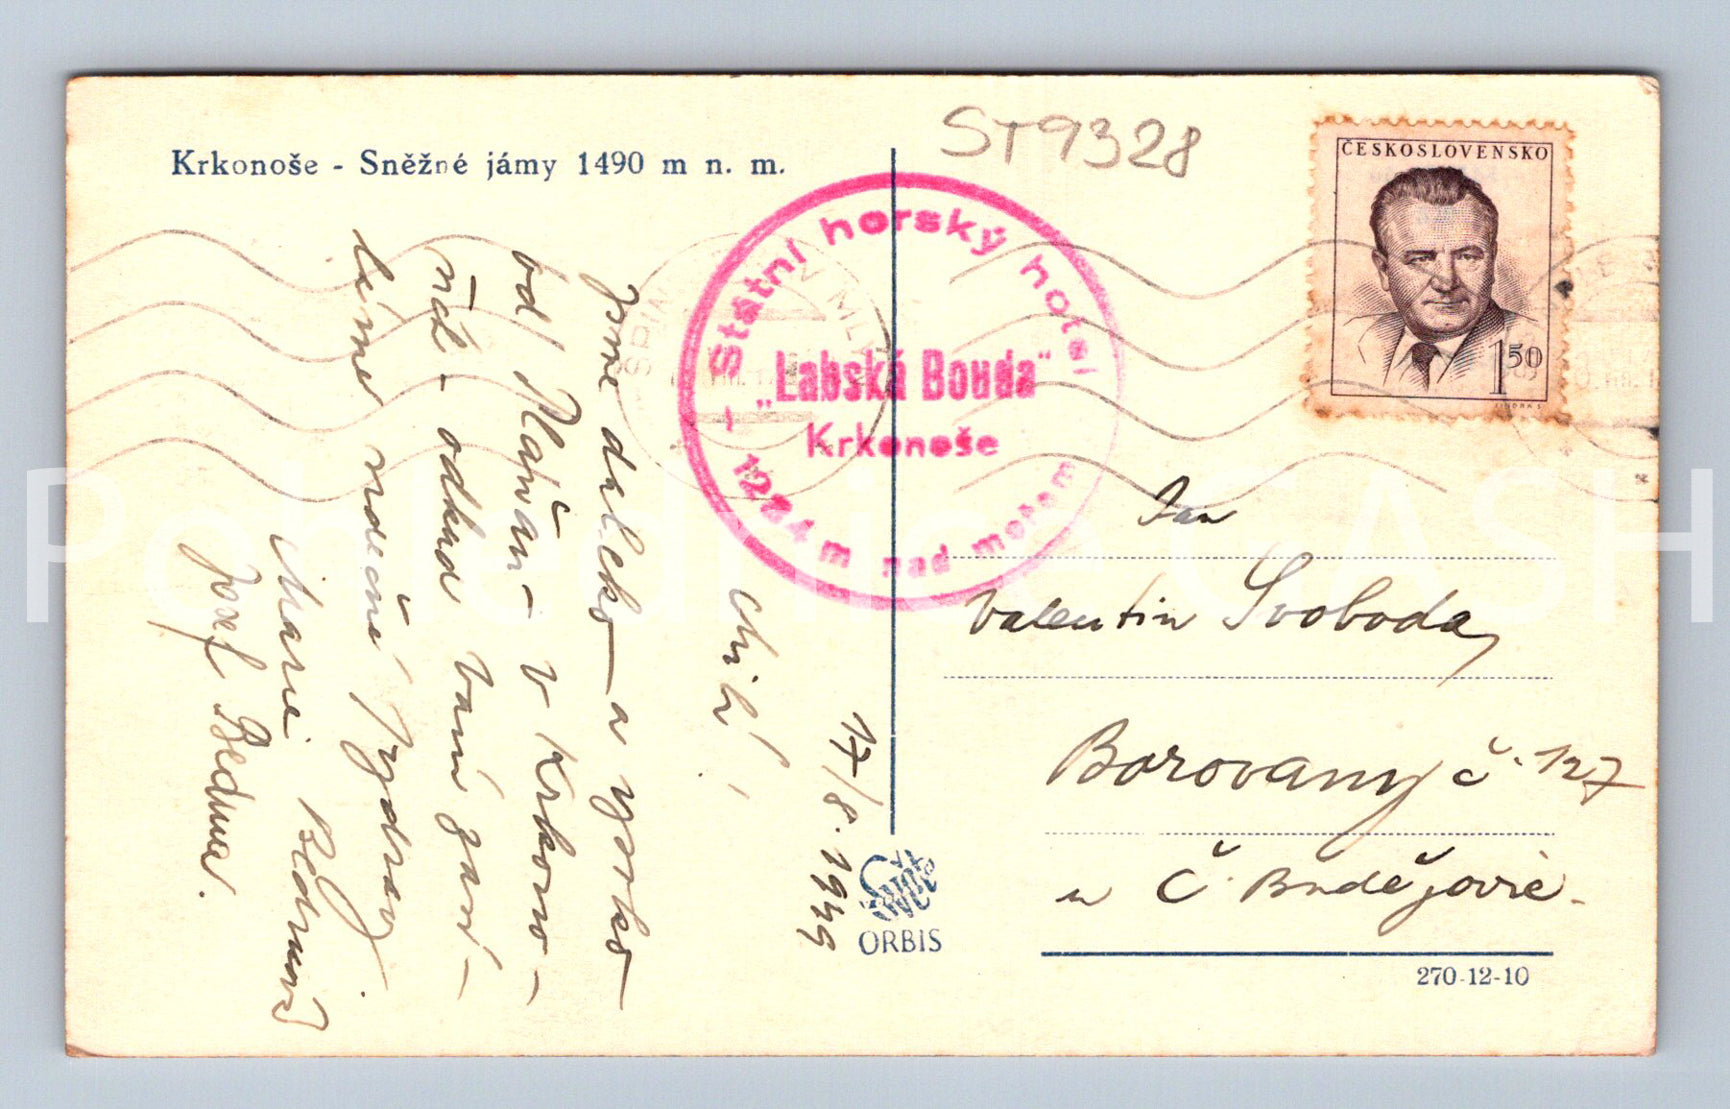 Krkonoše - Sněžné jámy 1490 m n. m.
ST9328
ČESKOSLOVENSKO
1 50
- Státní horský hotel
"Labská Bouda"
Krkonoše
1284 m nad mořem
17/8. 1949
Milí,
Jsme daleko – a vysoko –
od – v Krkono-
– odkud Vám zasí-
láme srdečné pozdravy.
Marie Bedrnová
Josef Bedrna.
Pan
Valentin Svoboda,
Borovany č. 127
u Č. Budějovic.
ORBIS
270-12-10
Pohlednice GASH